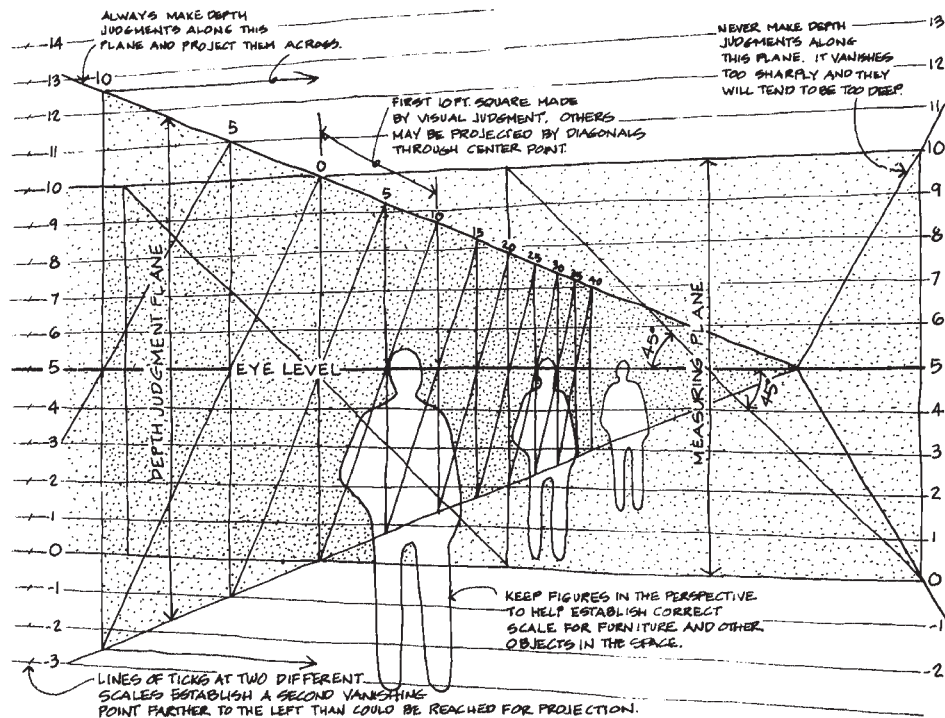 ALWAYS MAKE DEPTH
JUDGMENTS ALONG THIS
PLANE AND PROJECT THEM ACROSS.
NEVER MAKE DEPTH
JUDGMENTS ALONG
THIS PLANE. IT VANISHES
TOO SHARPLY AND THEY
WILL TEND TO BE TOO DEEP.
FIRST 10 FT. SQUARE MADE
BY VISUAL JUDGMENT. OTHERS
MAY BE PROJECTED BY DIAGONALS
THROUGH CENTER POINT.
14
13
12
11
10
9
8
7
6
5
4
3
2
1
0
-1
-2
-3
10
5
0
5
10
15
20
25
30
35
40
13
12
11
10
9
8
7
6
5
4
3
2
1
0
-1
-2
DEPTH JUDGMENT PLANE
EYE LEVEL
MEASURING PLANE
45°
45°
KEEP FIGURES IN THE PERSPECTIVE
TO HELP ESTABLISH CORRECT
SCALE FOR FURNITURE AND OTHER
OBJECTS IN THE SPACE.
LINES OF TICKS AT TWO DIFFERENT
SCALES ESTABLISH A SECOND VANISHING
POINT FARTHER TO THE LEFT THAN COULD BE REACHED FOR PROJECTION.